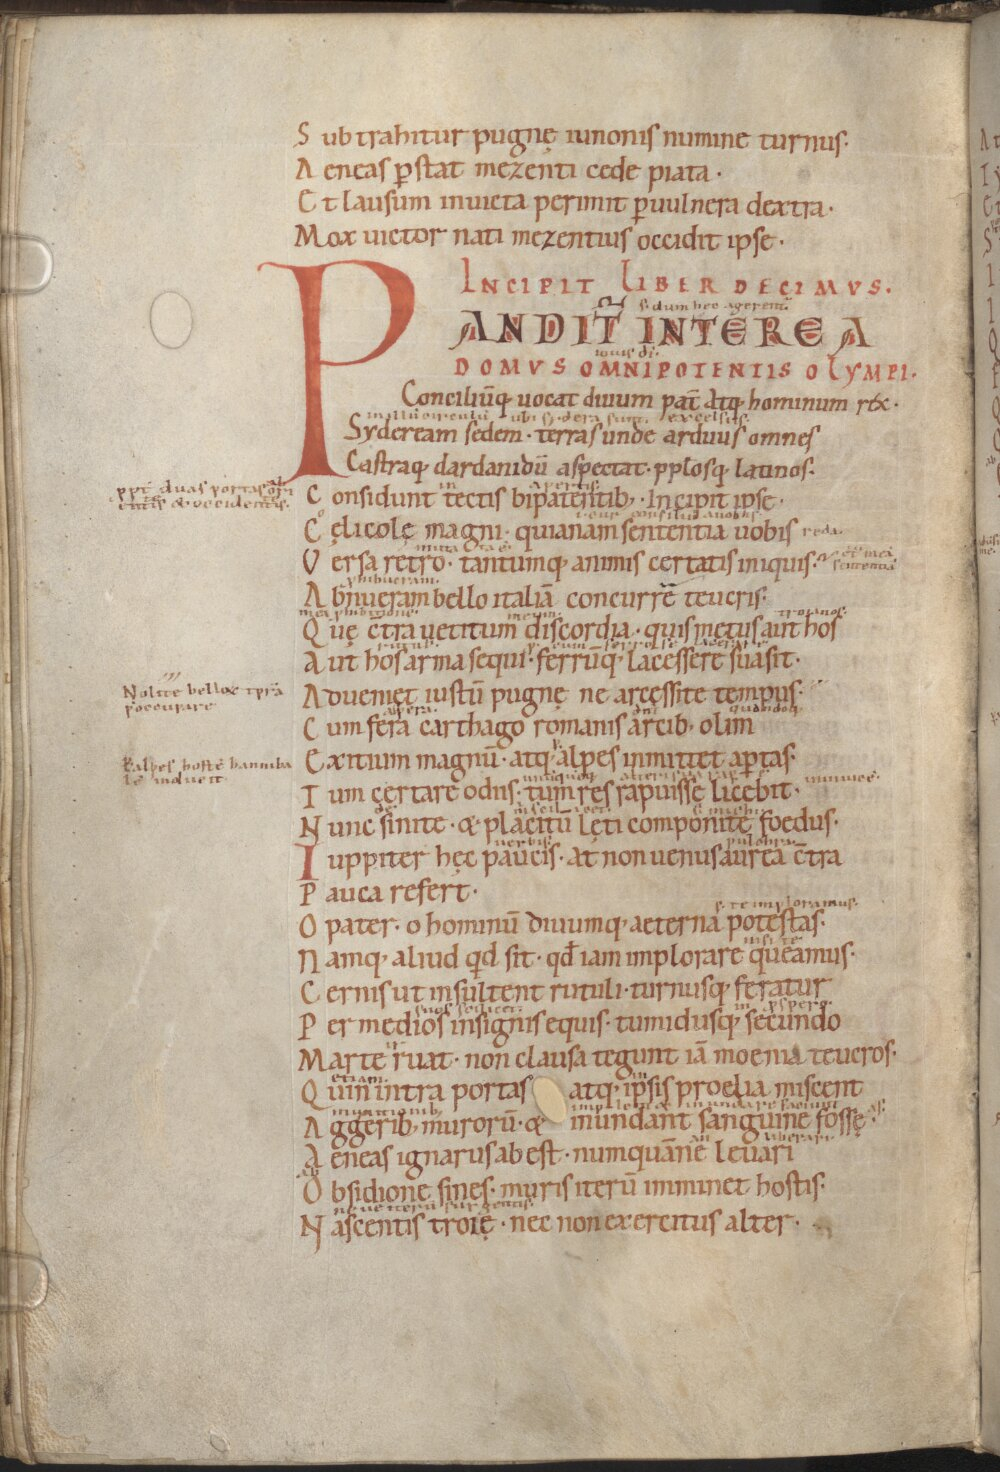 Subtrahitur pugnę iunonis numine turnus·
Aeneas p̱stat mezenti cede piata·
Et lausum inuicta perimit p̱ uulnera dextra·
Mox uictor nati mezentius occidit ipse·
INCIPIT LIBER DECIMVS.
si dum hęc agerent̄
PANDIT INTEREA
DOMVS OMNIPOTENTIS OLYMPI·
Conciliūq; uocat diuum pat̄ atq; hominum rex·
ubi sydera sunt. excelsus.
Sydeream sedem· terras unde arduus omnes
Castraq; dardanidū aspectat· pplosq; latinos·
apertis.
Considunt tectis bipatentib;· Incipit ipse·
Cęlicolę magni· quianam sententia uobis
Versa retro· tantumq; animis certatis iniquis·
Abnueram bello italiā concurrē teucris·
troianos.
Quę c̄tra uetitum discordia· quis metus aut hos
Aut hos arma sequi· ferrūq; lacessere suasit·
Nolite bello
Adueniet iustū pugnę ne arcessite tempus·
Cum fera carthago romanis arcib; olim
Exitium magnū· atq; alpes inmittet ap̱tas·
ꝑ alpes hostē hanniba
lē induxit
Tum certare odiis· tum res rapuisse licebit·
Nunc sinite· & placitū lęti componite foedus·
uerbis. pulchra.
Iuppiter hęc paucis· at non uenus aurea c̄tra
Pauca refert·
s. te imploramus.
O pater· o hominū diuumq; aeterna potestas·
nisi te
Namq; aliud qd sit· qd iam implorare queamus·
Cernis ut insultent rutuli· turnusq; feratur
Per medios insignis equis· tumidusq; secundo
Marte ruat· non clausa tegunt iā moenia teucros·
etiam
Quin intra portas atq; ipsis proelia miscent
Aggerib; murorū· & inundant sanguine fossę·
Aeneas ignarus abest· numquāne leuari
Obsidione sines· muris iterū imminet hostis·
Nascentis troię· nec non exercitus alter·